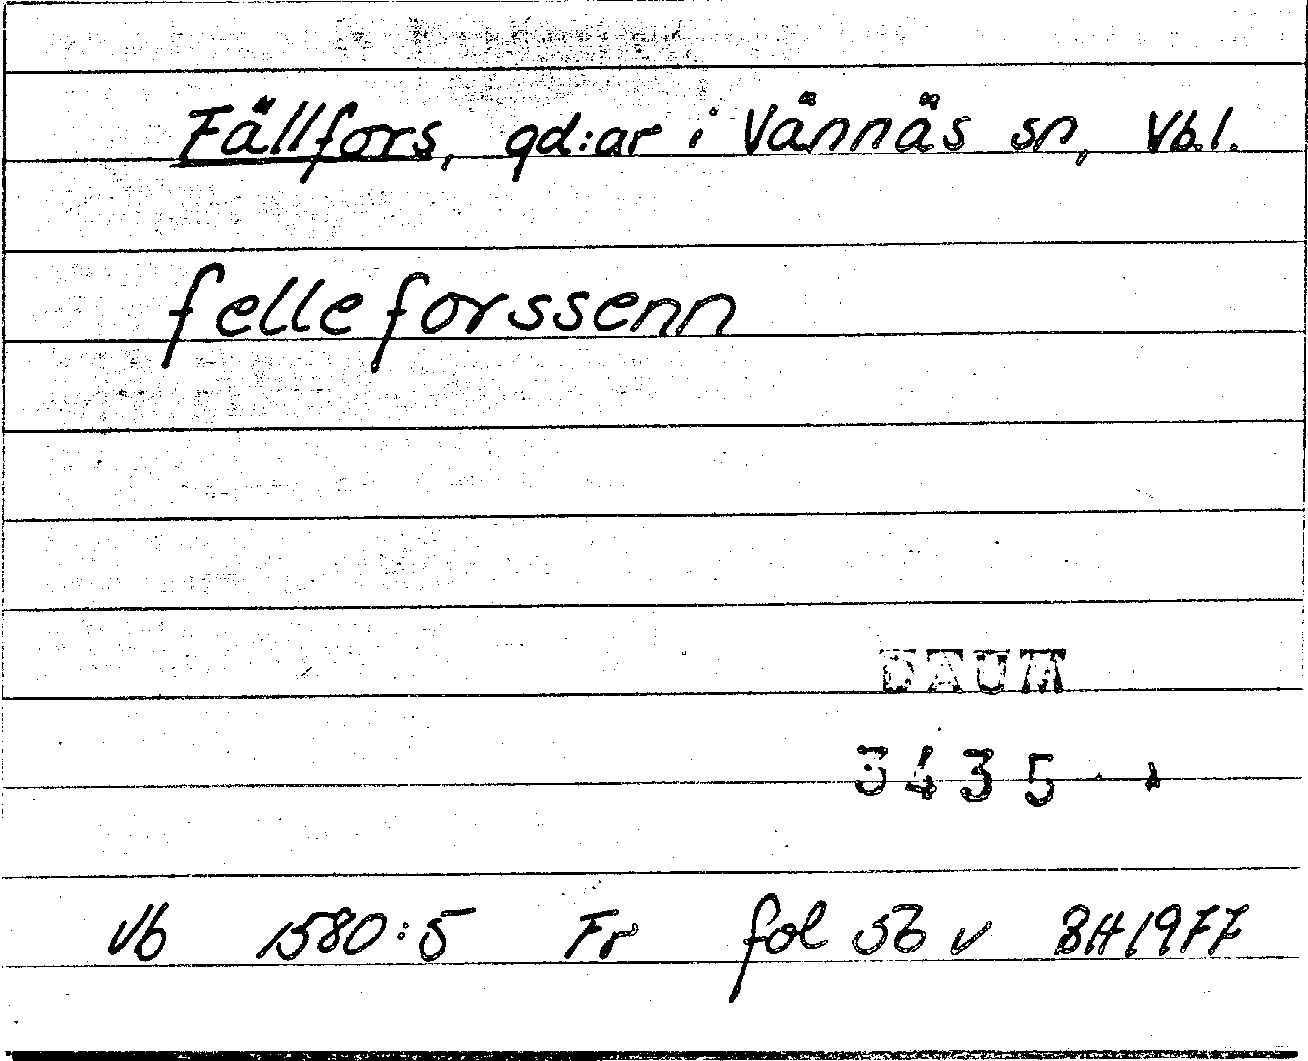 Fällfors, gd:ar i Vännäs sn, Vb.l.
felleforssenn
DAUM
3435
Vb 1580:5 Fr fol 56 v BH 1977